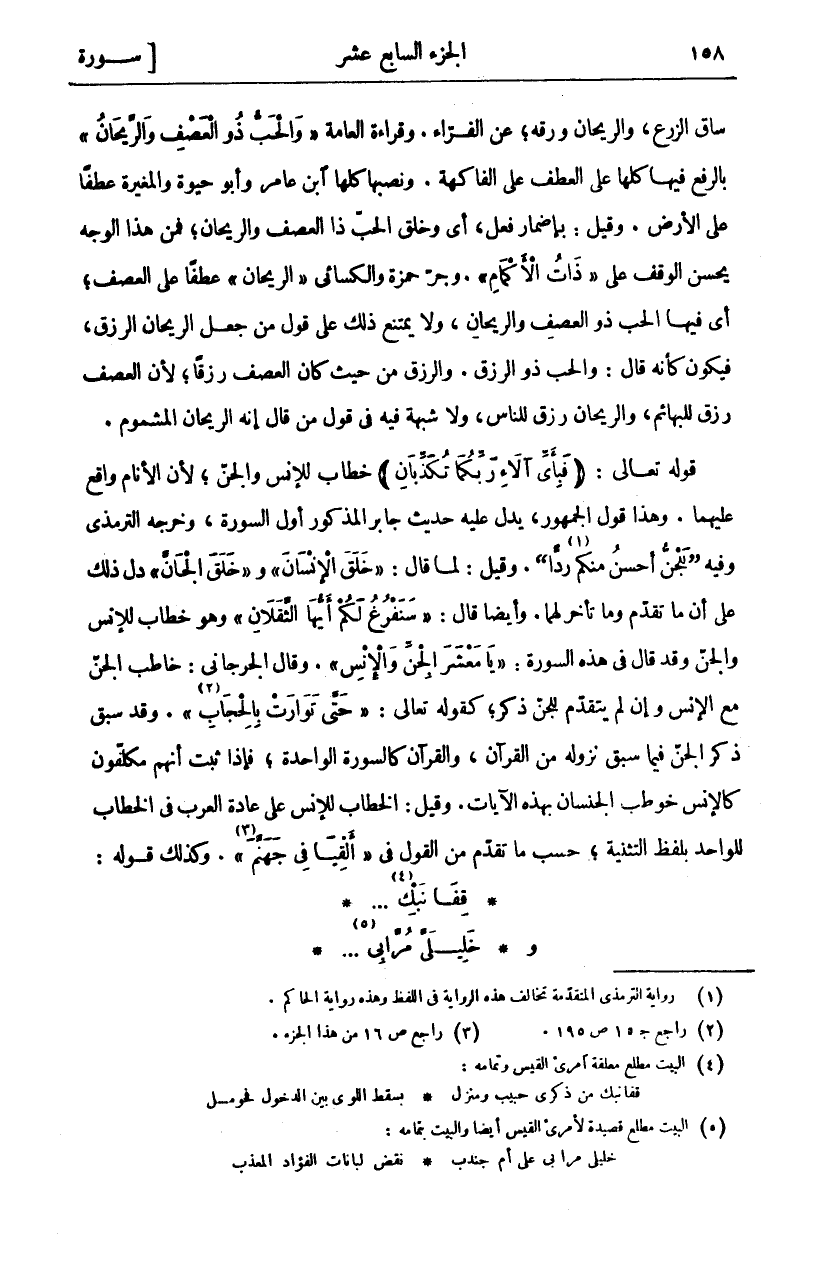 ١٥٨ الجزء السابع عشر [ سورة
ساق الزرع، والريحان ورقه؛ عن الفراء . وقراءة العامة « وَالْحَبُّ ذُو الْعَصْفِ وَالرَّيْحَانُ »
بالرفع فيها كلها على العطف على الفاكهة . ونصبها كلها ٱبن عامر وأبو حيوة والمغيرة عطفًا
على الأرض . وقيل : بإضمار فعل، أى وخلق الحبّ ذا العصف والريحان؛ فمن هذا الوجه
يحسن الوقف على « ذَاتُ الْأَكْمَامِ» . وجرّ حمزة والكسائى « الريحان » عطفًا على العصف؛
أى فيها الحب ذو العصفِ والريحانِ ، ولا يمتنع ذلك على قول من جعل الريحان الرزق،
فيكون كأنه قال : والحب ذو الرزق . والرزق من حيث كان العصف رزقًا؛ لأن العصف
رزق للبهائم، والريحان رزق للناس، ولا شبهة فيه فى قول من قال إنه الريحان المشموم .
قوله تعالى : ﴿ فَبِأَىِّ آلَاءِ رَبِّكُمَا تُكَذِّبَانِ ﴾ خطاب للإنس والجنّ ؛ لأن الأنام واقع
عليهما . وهذا قول الجمهور، يدل عليه حديث جابر المذكور أول السورة ، وخرجه الترمذى
وفيه ”لَلْجِنُّ أحسنُ منكم ردًّا“(١) . وقيل : لما قال : «خَلَقَ الْإِنْسَانَ» و «خَلَقَ الْجَانَّ» دل ذلك
على أن ما تقدّم وما تأخر لهما. وأيضا قال : « سَنَفْرُغُ لَكُمْ أَيُّهَا الثَّقَلَانِ » وهو خطاب للإنس
والجنّ وقد قال فى هذه السورة : «يَا مَعْشَرَ الْجِنِّ وَالْإِنْسِ» . وقال الجرجانى : خاطب الجنّ
مع الإنس و إن لم يتقدّم للجنّ ذكر؛ كقوله تعالى : « حَتَّى تَوَارَتْ بِالْحِجَابِ(٢) » . وقد سبق
ذكر الجنّ فيما سبق نزوله من القرآن ، والقرآن كالسورة الواحدة ؛ فإذا ثبت أنهم مكلّفون
كالإنس خوطب الجنسان بهذه الآيات. وقيل : الخطاب للإنس على عادة العرب فى الخطاب
للواحد بلفظ التثنية ؛ حسب ما تقدّم من القول فى « أَلْقِيَا فِى جَهَنَّمَ(٣) » . وكذلك قوله :
* قِفَا نَبْكِ(٤) ... *
و * خَلِيلَىَّ مُرَّابِى(٥) ... *
(١) رواية الترمذى المتقدّمة تخالف هذه الرواية فى اللفظ وهذه رواية الحاكم .
(٢) راجع جـ ١٥ ص ١٩٥ . (٣) راجع ص ١٦ من هذا الجزء .
(٤) البيت مطلع معلقة ٱمرئ القيس وتمامه :
قفا نبك من ذكرى حبيب ومنزل * بسقط اللوى بين الدخول فحومل
(٥) البيت مطلع قصيدة لأمرئ القيس أيضا والبيت بتمامه :
خليلى مرا بى على أم جندب * نقض لبانات الفؤاد المعذب